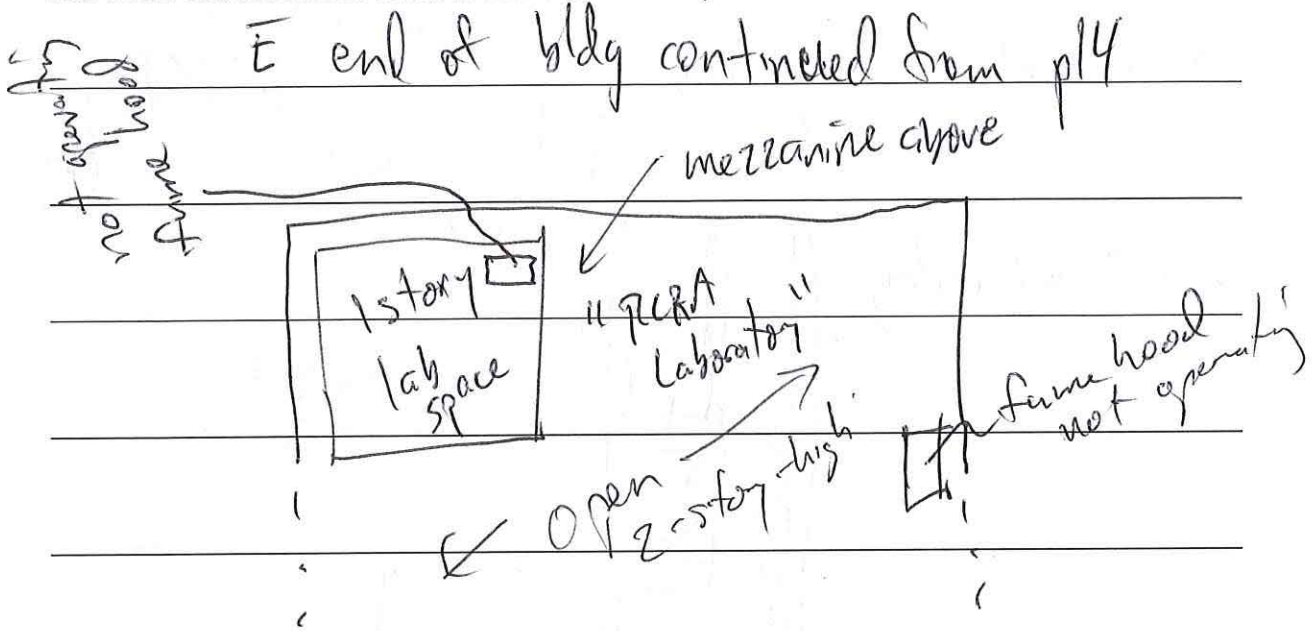 E end of bldg continued from p14
fume hood
not operating
mezzanine above
1 story
lab
space
"RCRA
Laboratory"
fume hood
not operating
Open
2-story-high